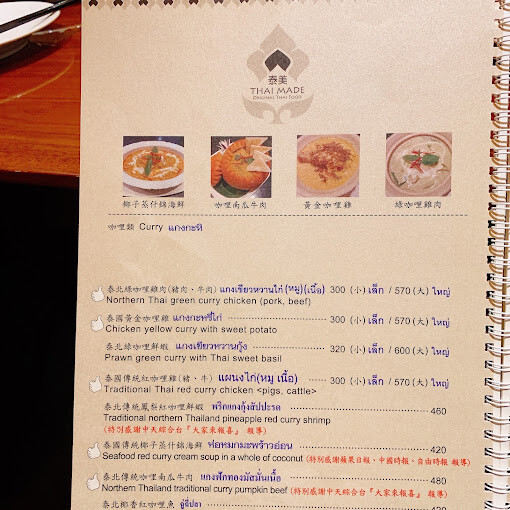 泰美
THAI MADE
ORIGINAL THAI FOOD
椰子蒸什錦海鮮
咖哩南瓜牛肉
黃金咖哩雞
綠咖哩雞肉
咖哩類 Curry แกงกะทิ
泰北綠咖哩雞肉(豬肉、牛肉) แกงเขียวหวานไก่ (หมู)(เนื้อ) 300 (小) เล็ก / 570 (大) ใหญ่
Northern Thai green curry chicken (pork, beef)
泰國黃金咖哩雞 แกงกะหรี่ไก่ 300 (小) เล็ก / 570 (大) ใหญ่
Chicken yellow curry with sweet potato
泰北綠咖哩鮮蝦 แกงเขียวหวานกุ้ง 320 (小) เล็ก / 600 (大) ใหญ่
Prawn green curry with Thai sweet basil
泰國傳統紅咖哩雞(豬、牛) แผนงไก่(หมู เนื้อ) 300 (小) เล็ก / 570 (大) ใหญ่
Traditional Thai red curry chicken <pigs, cattle>
泰北傳統鳳梨紅咖哩鮮蝦 พริกแกงกุ้งสัปปะรด 460
Traditional northern Thailand pineapple red curry shrimp
(特別感謝中天綜合台『大家來報喜』報導)
泰國傳統椰子蒸什錦海鮮 ห่อหมกมะพร้าวอ่อน 420
Seafood red curry cream soup in a whole of coconut (特別感謝蘋果日報、中國時報、自由時報 報導)
泰北傳統咖哩南瓜牛肉 แกงฟักทองมัสมั่นเนื้อ 480
Northern Thailand traditional curry pumpkin beef (特別感謝中天綜合台『大家來報喜』報導)
泰北椰香紅咖哩魚 ฉู่ฉี่ปลา 420